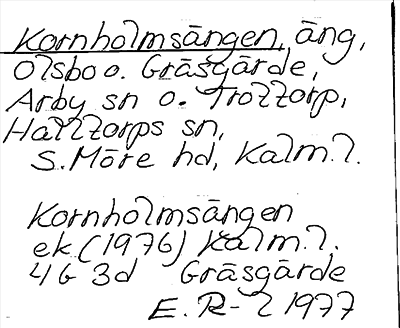 Kornholmsängen, äng,
Olsbo o. Gräsgärde,
Arby sn o. Trollorp,
Halltorps sn,
S. Möre hd, Kalm. l.
Kornholmsängen
ek. (1976) Kalm. l.
4 G 3d Gräsgärde
E. R-l 1977